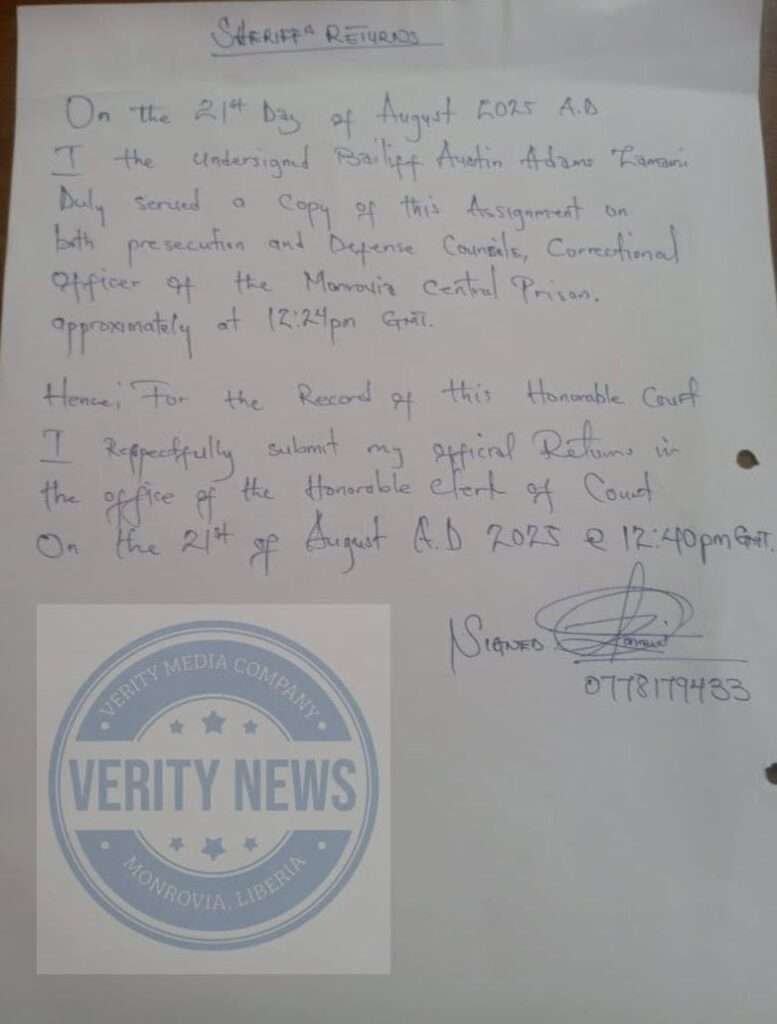 SHERIFF'S RETURNS
On the 21st Day of August 2025 A.D
I the undersigned Bailiff Austin Adams
Duly served a Copy of this Assignment on
both presecution and Defense Councils, Correctional
Officer of the Monrovia Central Prison.
approximately at 12:24pm GMT.
Hence; For the Record of this Honorable Court
I Respectfully submit my official Returns in
the office of the Honorable Clerk of Court
On the 21st of August A.D 2025 @ 12:40pm GMT.
SIGNED
0778179433
VERITY MEDIA COMPANY
VERITY NEWS
MONROVIA, LIBERIA